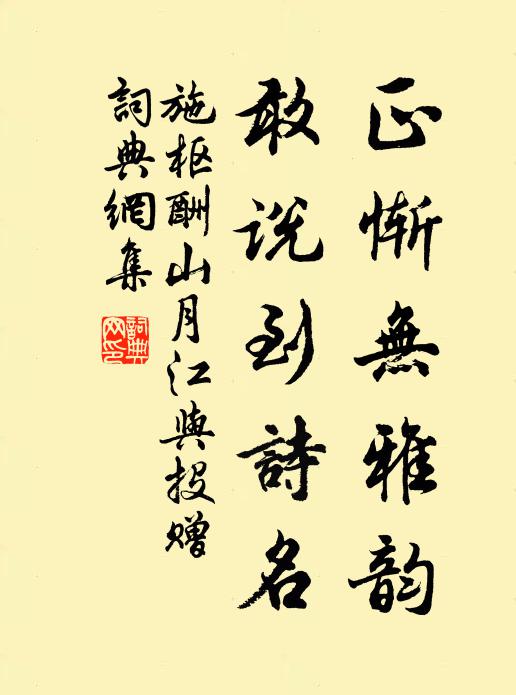 正惭無雅韵
敢说到詩名
施枢酬山月江與投赠
詞典網集
詞典网印